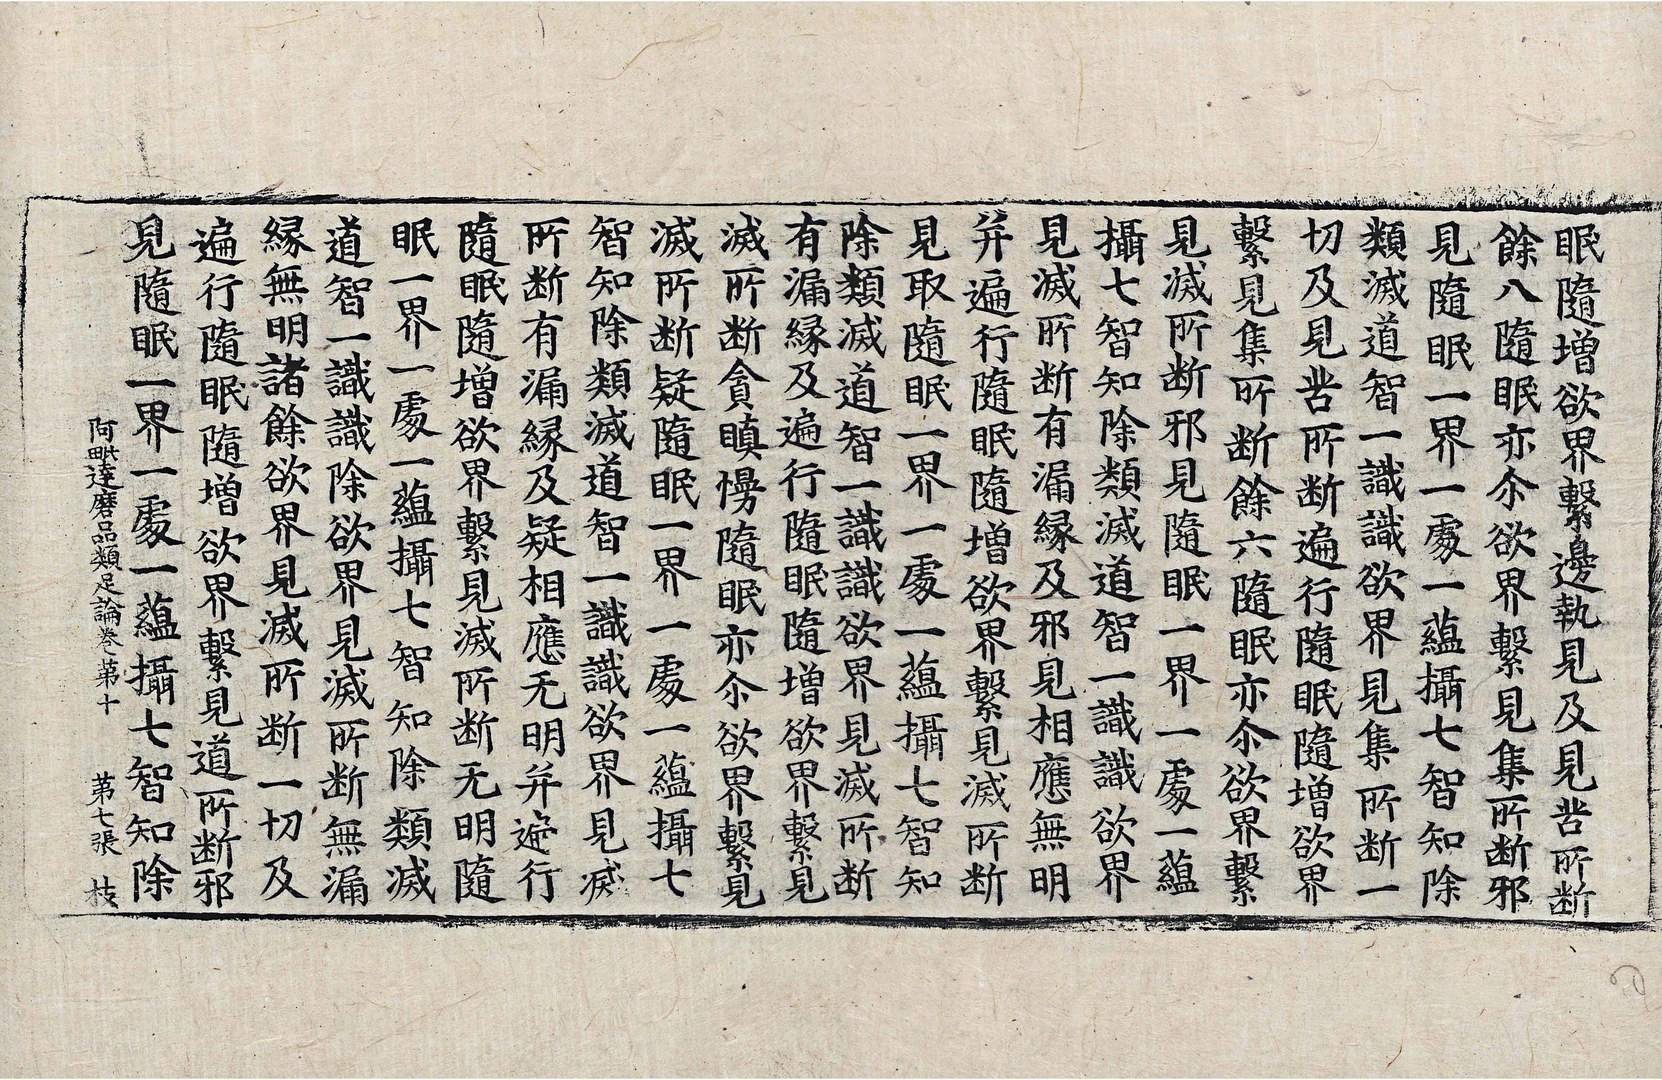 眠隨增欲界繫邊執見及見苦所断
餘八隨眠亦尒欲界繫見集所断邪
見隨眠一界一處一蘊攝七智知除
類滅道智一識識欲界見集所断一
切及見苦所断遍行隨眠隨增欲界
繫見集所断餘六隨眠亦尒欲界繫
見滅所断邪見隨眠一界一處一蘊
攝七智知除類滅道智一識識欲界
見滅所断有漏縁及邪見相應無明
并遍行隨眠隨增欲界繫見滅所断
見取隨眠一界一處一蘊攝七智知
除類滅道智一識識欲界見滅所断
有漏縁及遍行隨眠隨增欲界繫見
滅所断貪瞋慢隨眠亦尒欲界繫見
滅所断疑隨眠一界一處一蘊攝七
智知除類滅道智一識識欲界見滅
所断有漏縁及疑相應无明并遍行
隨眠隨增欲界繫見滅所断无明隨
眠一界一處一蘊攝七智知除類滅
道智一識識除欲界見滅所断無漏
縁無明諸餘欲界見滅所断一切及
遍行隨眠隨增欲界繫見道所断邪
見隨眠一界一處一蘊攝七智知除
阿毗達磨品類足論巻第十 第七張 枝